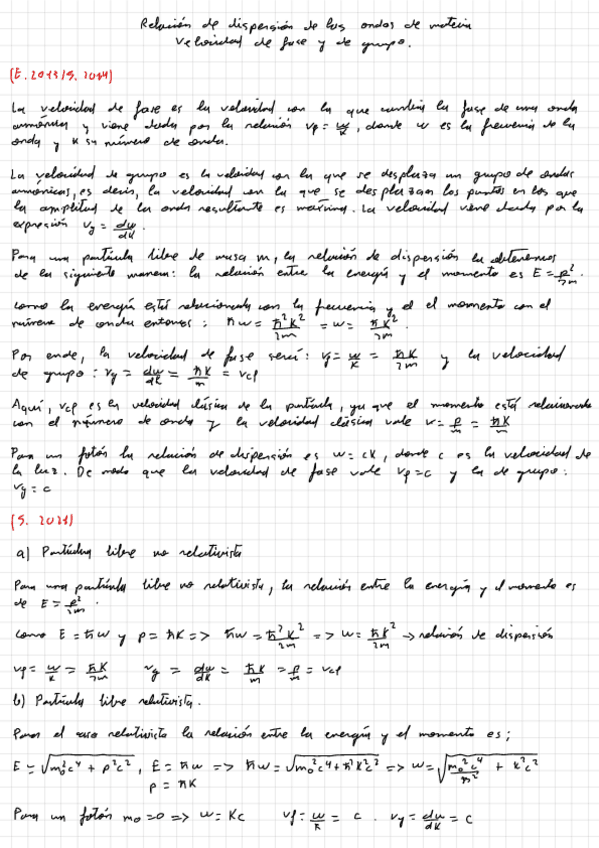 Relación de dispersión de las ondas de materia
Velocidad de fase y de grupo.
(E. 2023/S. 2024)
La velocidad de fase es la velocidad con la que cambia la fase de una onda
armónica y viene dada por la relación vp = w/k, donde w es la frecuencia de la
onda y k su número de onda.
La velocidad de grupo es la velocidad con la que se desplaza un grupo de ondas
armónicas, es decir, la velocidad con la que se desplazan los puntos en los que
la amplitud de la onda resultante es máxima. La velocidad viene dada por la
expresión vg = dw/dk.
Para una partícula libre de masa m, la relación de dispersión la obtenemos
de la siguiente manera: la relación entre la energía y el momento es E = p²/2m.
Como la energía está relacionada con la frecuencia y el el momento con el
número de onda entonces: ħw = ħ²k²/2m = w = ħk²/2m.
Por ende, la velocidad de fase será: vf = w/k = ħk/2m y la velocidad
de grupo: vg = dw/dk = ħk/m = vcl
Aquí, vcl es la velocidad clásica de la partícula, ya que el momento está relacionado
con el número de onda y la velocidad clásica vale v = p/m = ħk/m
Para un fotón la relación de dispersión es w = ck, donde c es la velocidad de
la luz. De modo que la velocidad de fase vale vp = c y la de grupo:
vg = c
(S. 2021)
a) Partícula libre no relativista
Para una partícula libre no relativista, la relación entre la energía y el momento es
de E = p²/2m.
Como E = ħw y p = ħk => ħw = ħ²k²/2m => w = ħk²/2m → relación de dispersión
vp = w/k = ħk/2m vg = dw/dk = ħk/m = p/m = vcl
b) Partícula libre relativista.
Para el caso relativista la relación entre la energía y el momento es;
E = √(m₀²c⁴ + p²c²), E = ħw => ħw = √(m₀²c⁴ + ħ²k²c²) => w = √(m₀²c⁴/ħ² + k²c²)
p = ħk
Para un fotón m₀=0 => w = kc vf = w/k = c. vg = dw/dk = c